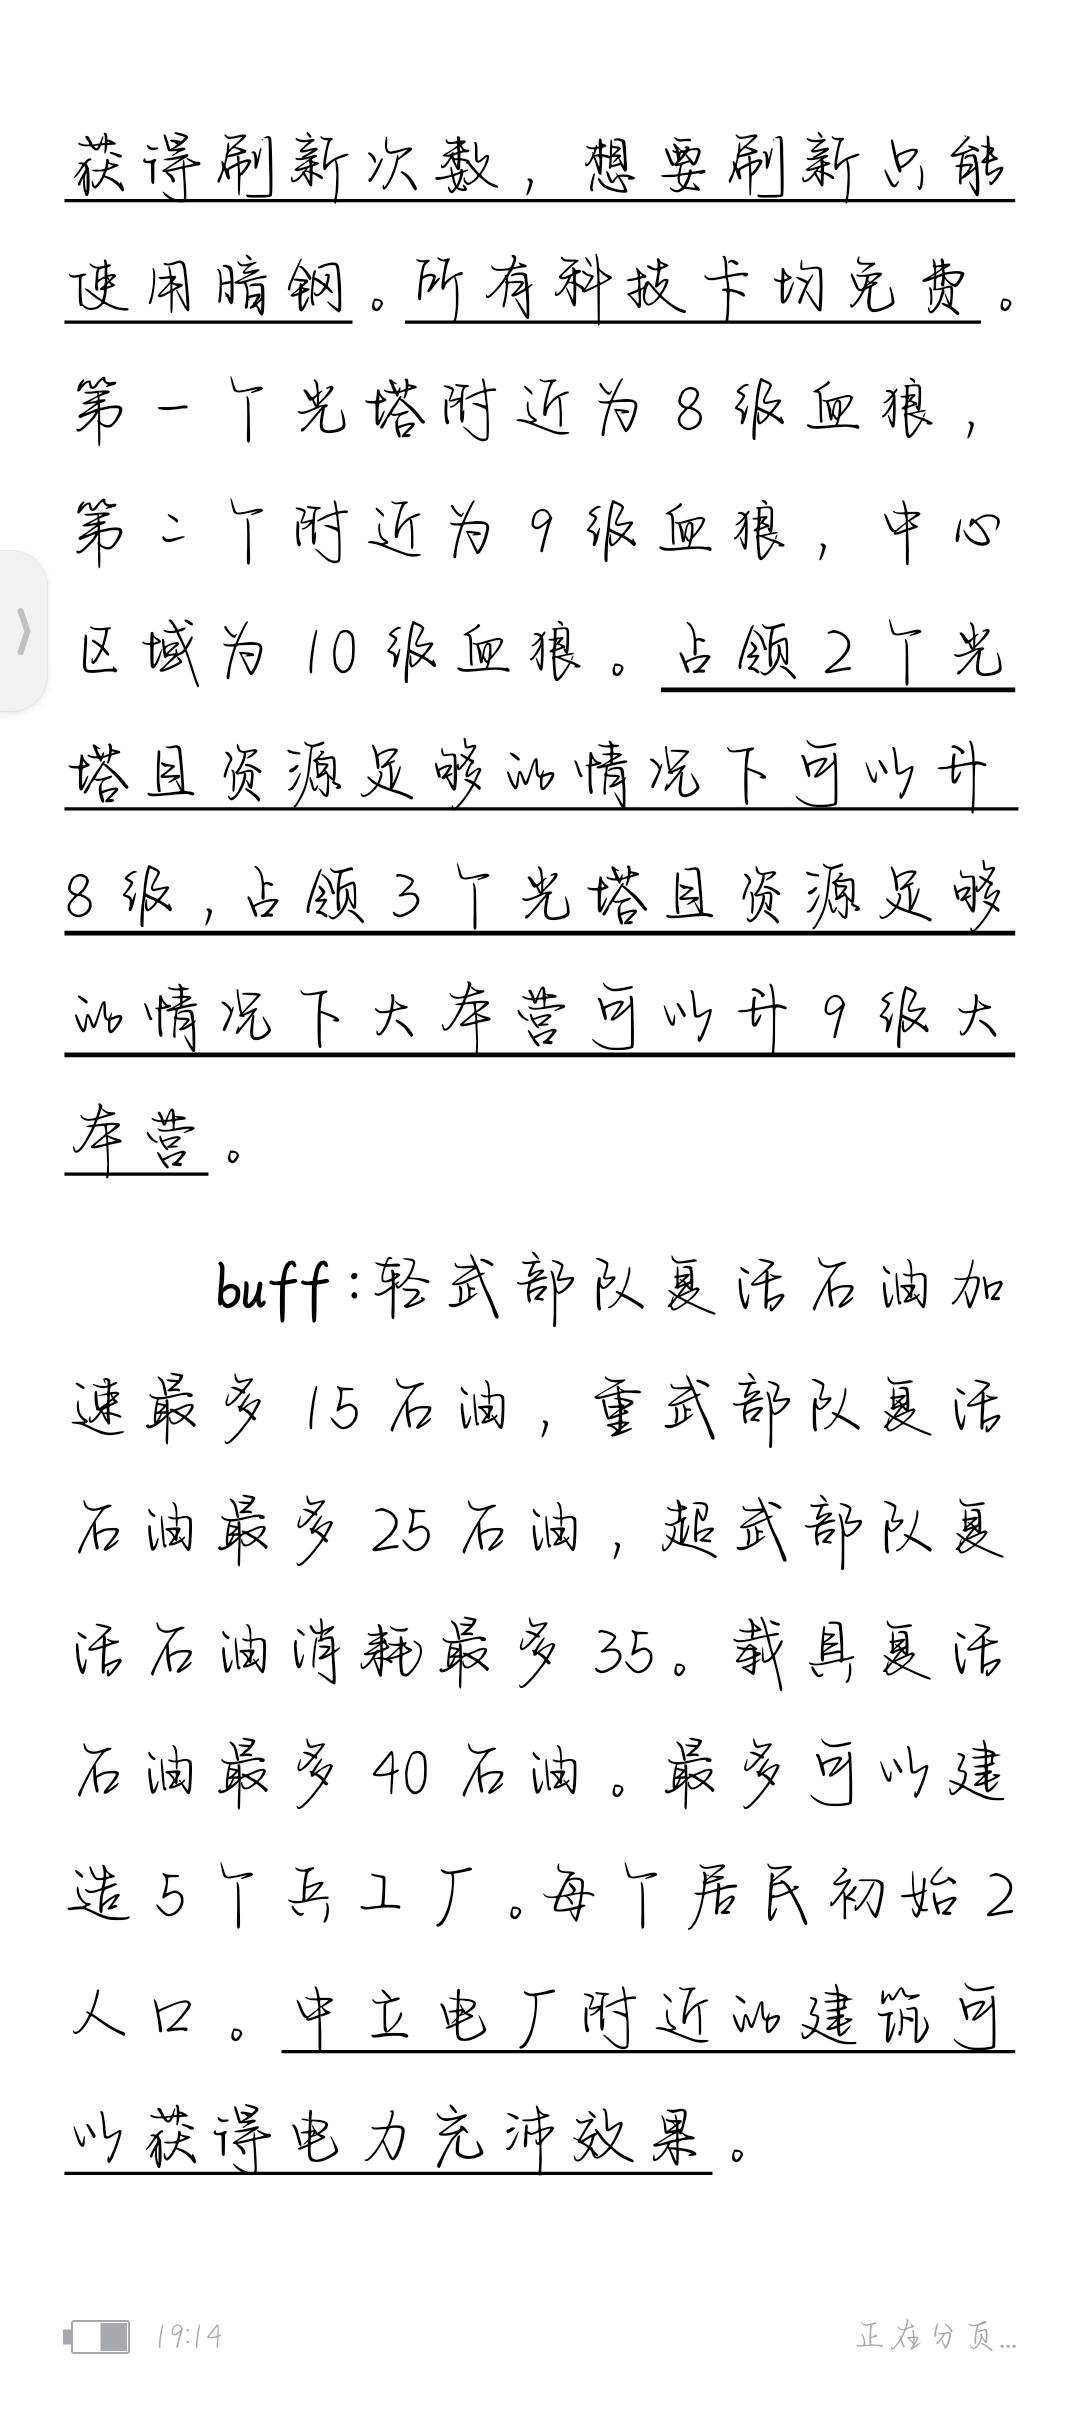 获得刷新次数，想要刷新只能
使用暗钢。所有科技卡均免费。
第一个光塔附近为8级血狼，
第二个附近为9级血狼，中心
区域为10级血狼。占领2个光
塔且资源足够的情况下可以升
8级，占领3个光塔且资源足够
的情况下大本营可以升9级大
本营。
buff：轻武部队复活石油加
速最多15石油，重武部队复活
石油最多25石油，超武部队复
活石油消耗最多35。载具复活
石油最多40石油。最多可以建
造5个兵工厂。每个居民初始2
人口。中立电厂附近的建筑可
以获得电力充沛效果。
19:14
正在分页...